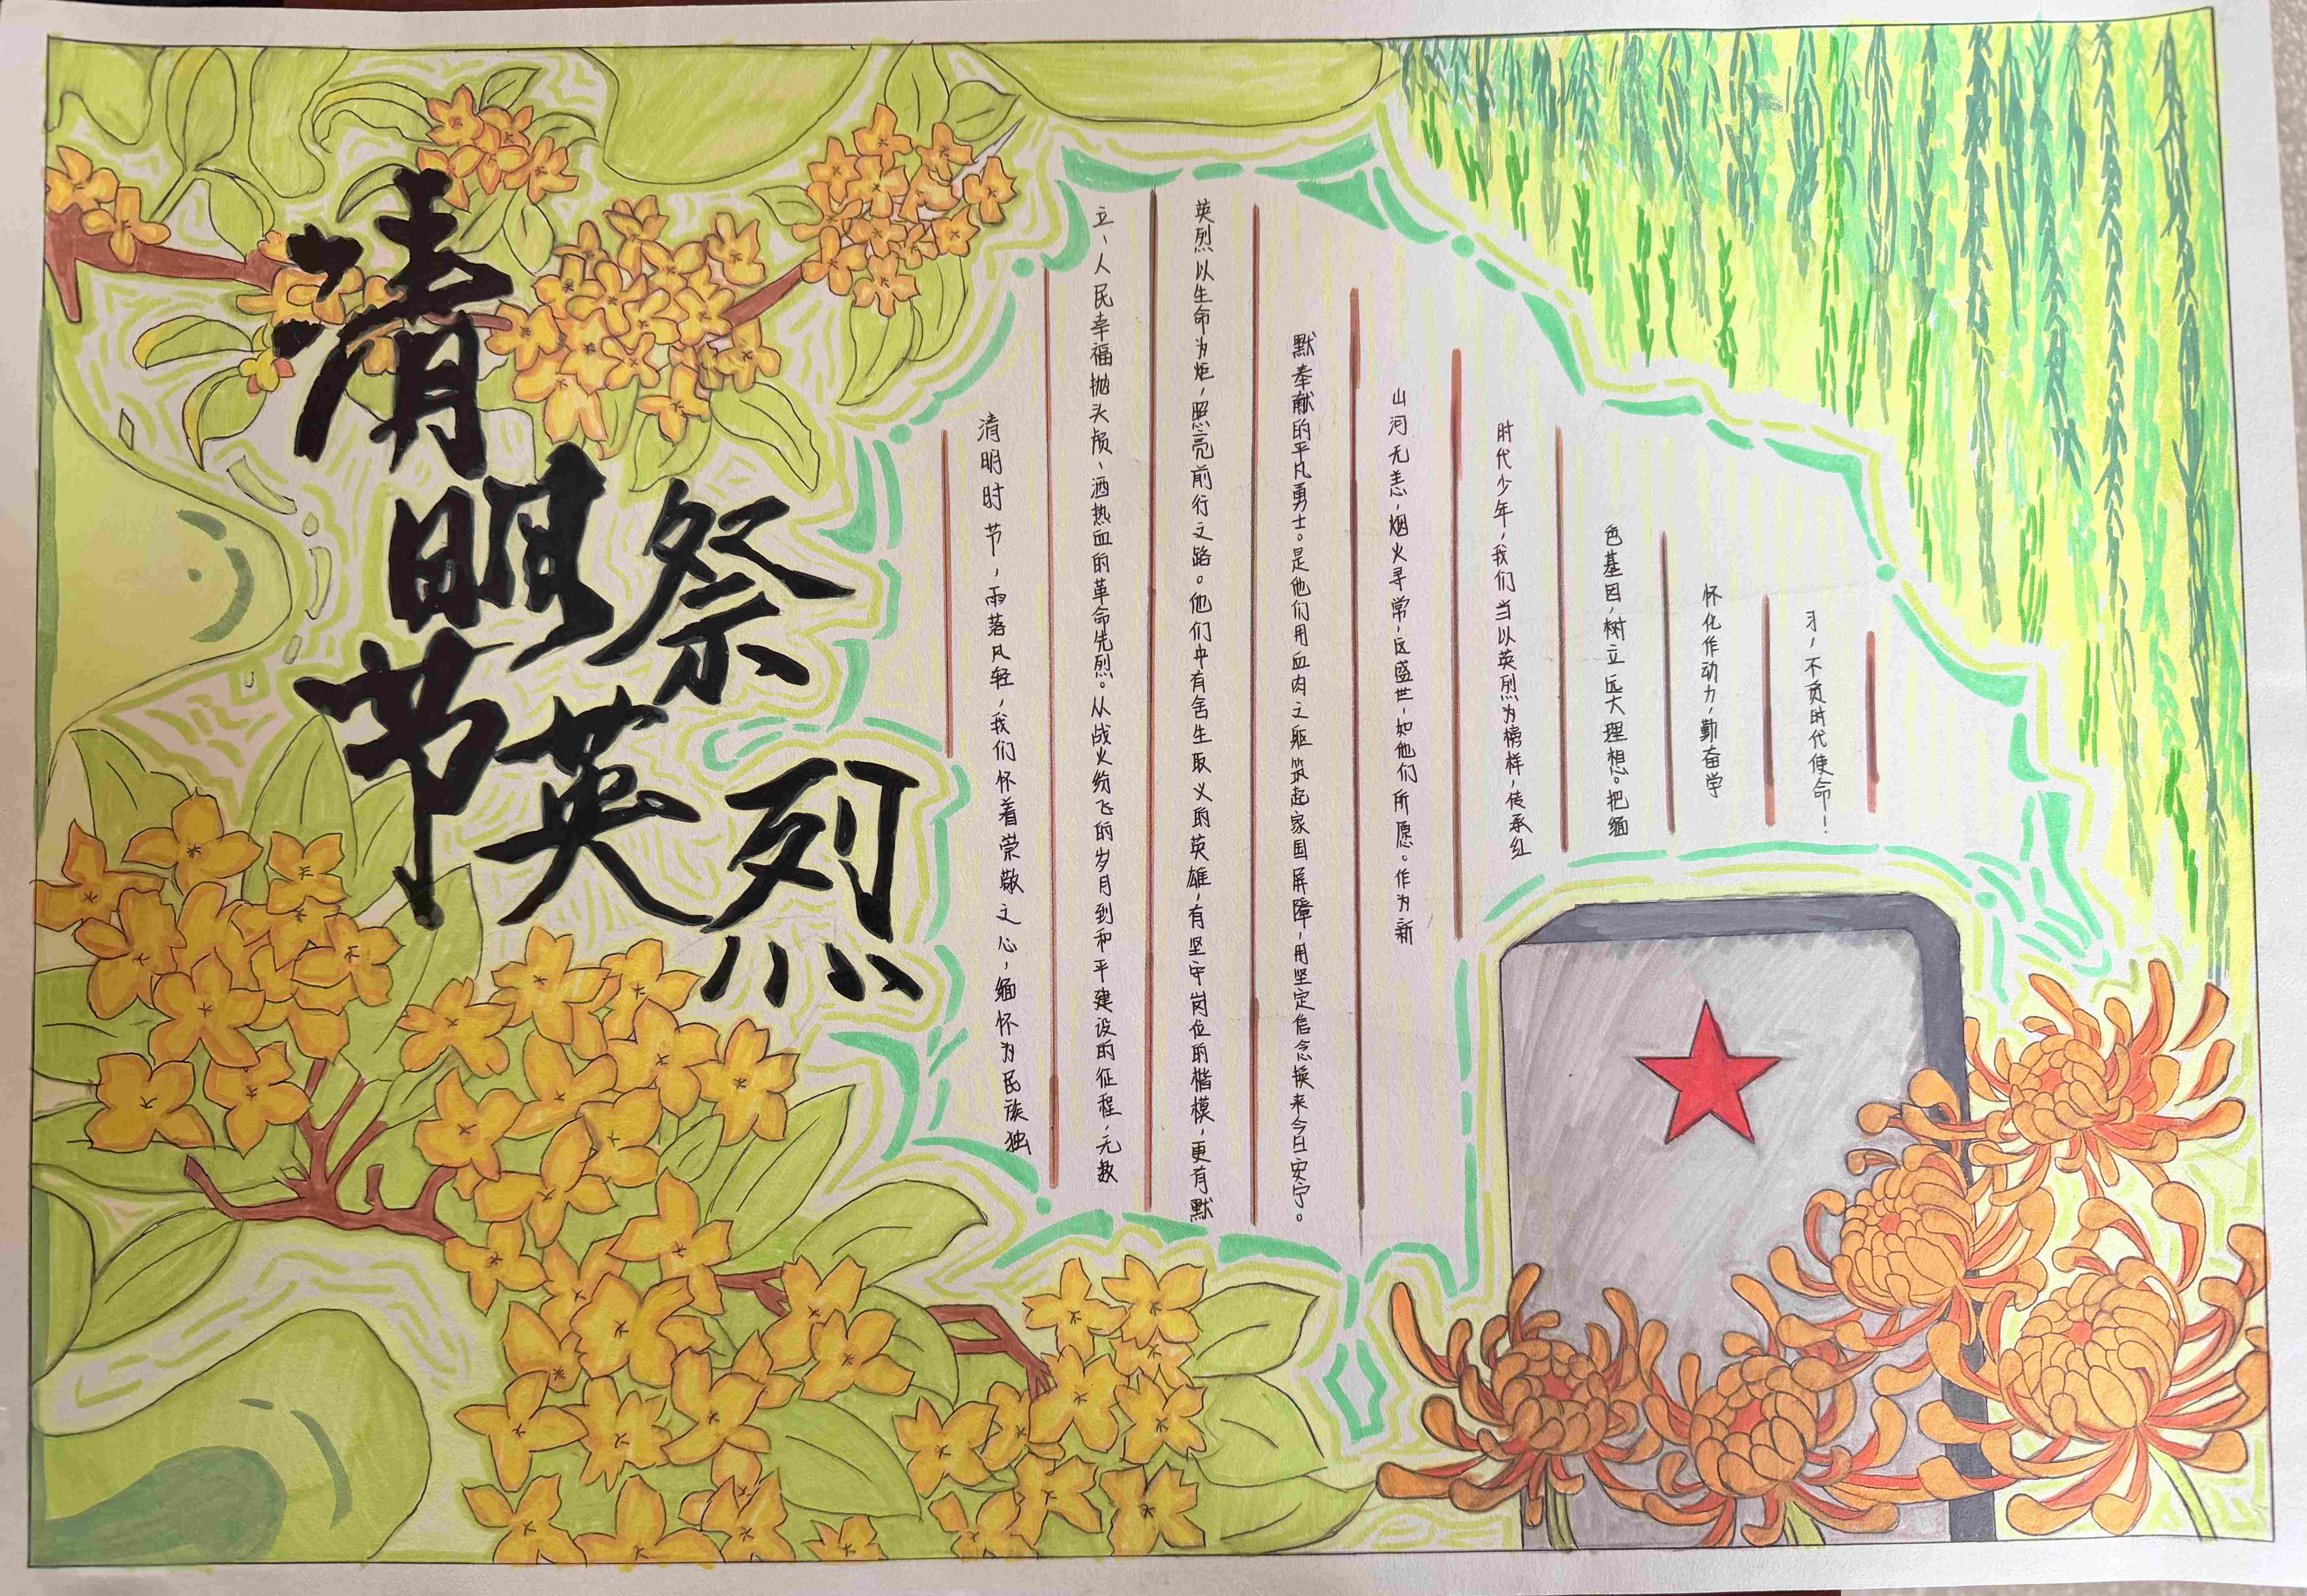 清明节
祭英烈
清明时节，雨落风轻，我们怀着崇敬之心，缅怀为民族独
立、人民幸福抛头颅、洒热血的革命先烈。从战火纷飞的岁月到和平建设的征程，无数
英烈以生命为炬，照亮前行之路。他们中有舍生取义的英雄，有坚守岗位的楷模，更有默
默奉献的平凡勇士。是他们用血肉之躯筑起家国屏障，用坚定信念换来今日安宁。
山河无恙，烟火寻常，这盛世，如他们所愿。作为新
时代少年，我们当以英烈为榜样，传承红
色基因，树立远大理想。把缅
怀化作动力，勤奋学
习，不负时代使命！